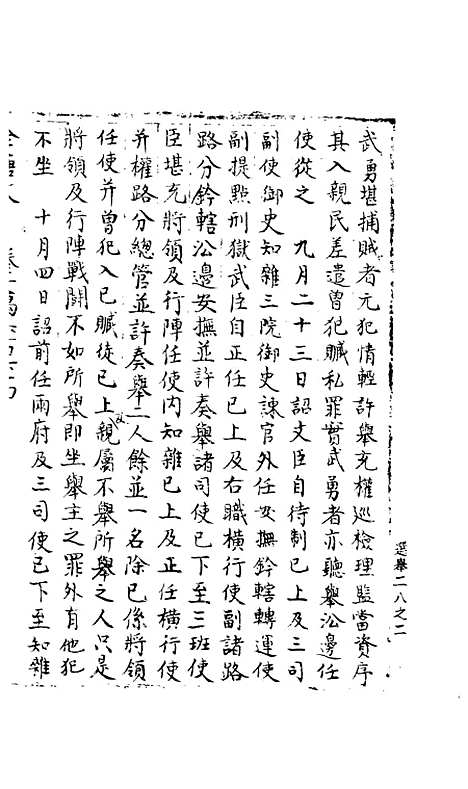 選舉二八之二
武勇堪捕賊者元犯情輕許舉充權巡檢理監當資序
其入親民差遣曾犯贓私罪實武勇者亦聽舉㳂邊任
使從之　九月二十三日詔文臣自待制已上及三司
副使御史知雜三院御史諫官外任安撫鈐轄轉運使
副提點刑獄武臣自正任已上及右職橫行使副諸路
路分鈐轄㳂邊安撫並許奏舉諸司使已下至三班使
臣堪充將領及行陣任使內知雜已上及正任橫行使
并權路分總管並許奏舉二人餘並一名除已係將領
任使并曾犯入已贓徒已上及親屬不舉所舉之人只是
將領及行陣戰鬪不如所舉即坐舉主之罪外有他犯
不坐　十月四日詔前任兩府及三司使已下至知雜